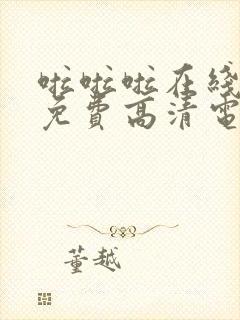 啦啦啦在綫
免費高清電
董越